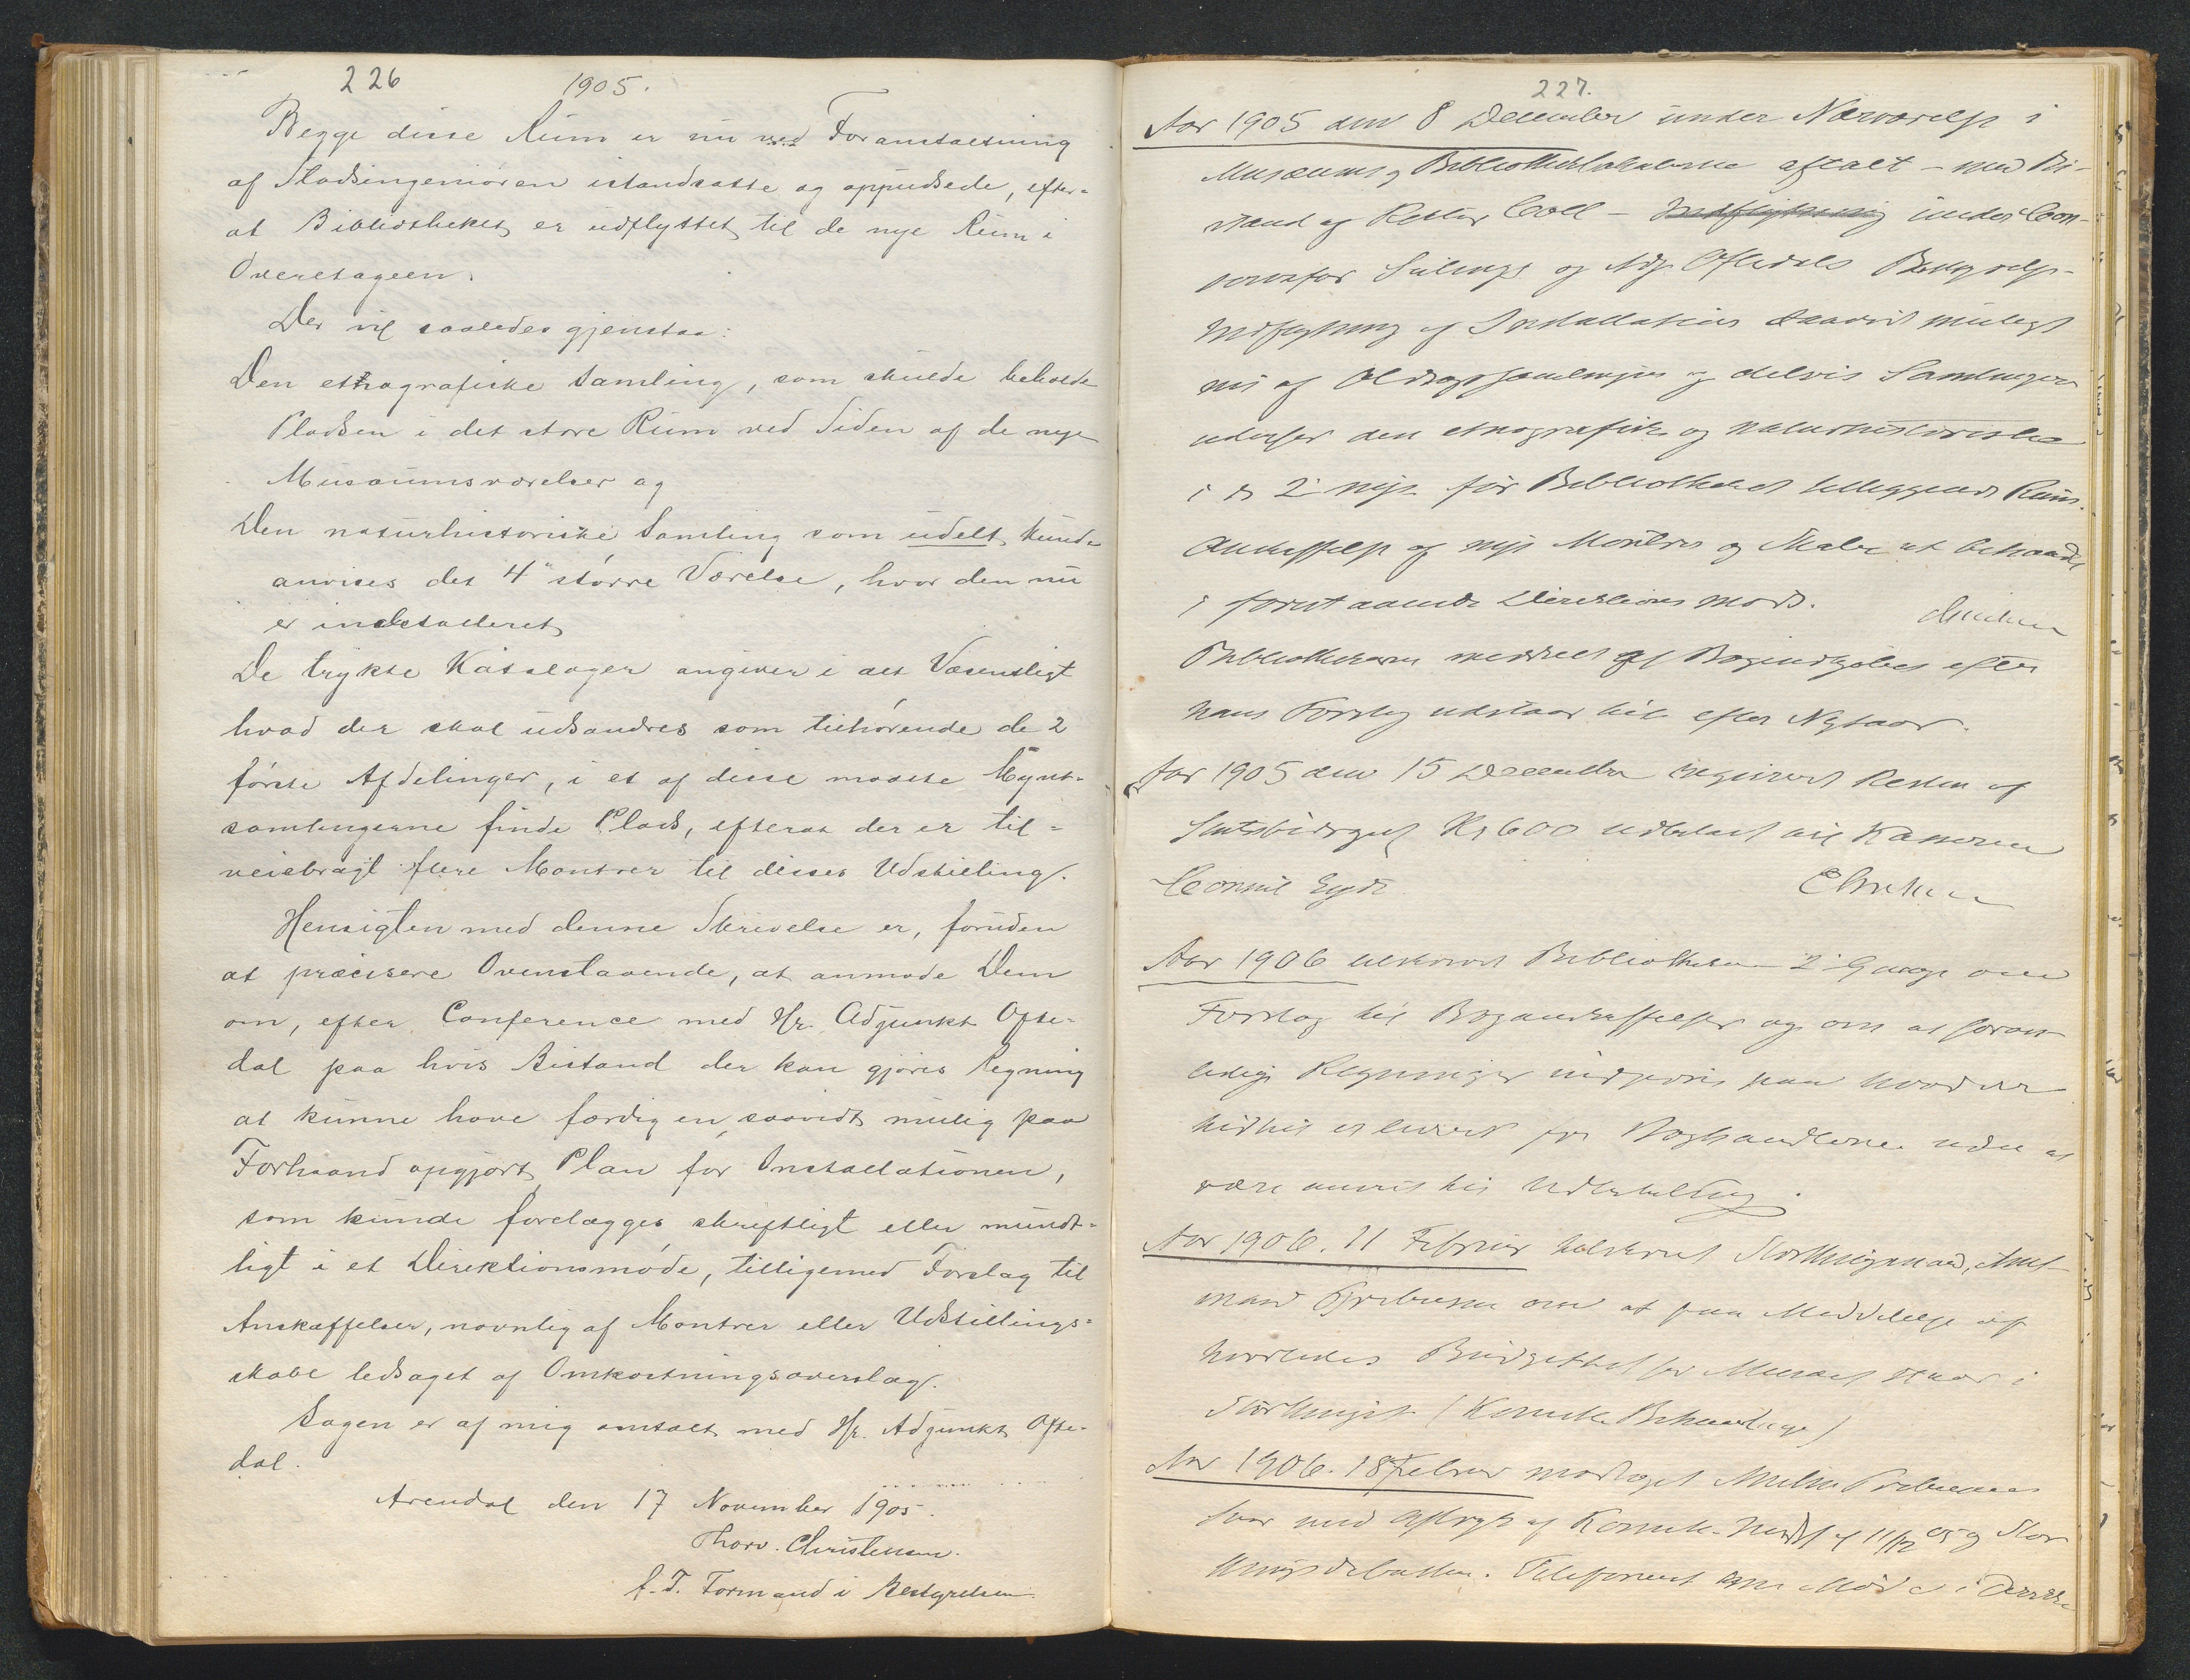 226 1905.
Begge disse Rum er nu ved Foranstaltning
af Stadsingeniøren istandsatte og oppudsede, efter-
at Bibliotheket er udflyttet til de nye Rum i
Overetagen.
Der vil saaledes gjenstaa:
Den ethnografiske Samling, som skulde beholde
Pladsen i det store Rum ved Siden af de nye
Musæumsværelser og
Den naturhistoriske Samling som udelt kunde
anvises det 4de større Værelse, hvor den nu
er indstalleret
De trykte Kataloger angiver i det Væsentligt
hvad der skal udsondres som tilhørende de 2
første Afdelinger, i et af disse maatte Mynt-
samlingerne finde Plads, efterat der er til-
veiebragt flere Montrer til disses Udstilling.
Hensigten med denne Skrivelse er, foruden
at præcisere Ovenstaaende, at anmode Dem
om, efter Conference med Hr. Adjunkt Ofte-
dal paa hvis Bistand der kan gjøres Regning
at kunne have færdig en, saavidt mulig paa
Forhaand opgjort Plan for Installationen,
som kunde forelægges skriftligt eller mundt-
ligt i et Direktionsmøde, tilligemed Forslag til
Anskaffelser, navnlig af Montrer eller Udstillings-
skabe ledsaget af Omkostningsoverslag.
Sagen er af mig omtalt med Hr. Adjunkt Ofte-
dal.
Arendal den 17 November 1905.
Thorv. Christensen.
f. T. Formand i Bestyrelsen.
227.
Aar 1905 den 8 December under Nærværelse i
Musæums og Bibliotheklokalerne aftalt – med Bi-
stand af Rektor Coll – Indflytning under Con-
servator og Adj. Oftedals Bestyrelse
Indflytning og Installation saavidt muligt
nu af Oldsagssamlingen og delvis Samlingen
den etnografiske og naturhistoriske
i de 2 nye før Bibliotheket tilliggende Rum.
Anskaffelse af nye Montrer og Skabe at behandle
i forestaaende Direktions møde.
Bibliothekaren meddeelt at Bogindkjøbet efter
hans Forslag udstaar til efter Nytaar.
Aar 1905 den 15 December Resten af
Kr 600 udbetalt til Kasserer
Consul Eyde
Aar 1906 tilskrevet Bibliothekaren 2 Gange om
Forslag til Boganskaffelser og om at foran
ledige Regninger indgivne paa hvad der
hidtil er leveret fra Boghandlerne uden at
være anvist til Udbetaling.
Aar 1906. 11 Februar tilskrevet Storthingsmand, Amt-
mand om at faa Meddelelse af
hvorledes Budgettet for Musæet staar i
Storthinget (Komite Behandlingen)
Aar 1906. 18 Februar modtaget
Svar med Aftryk af Komite- Indst. af 11/12 05 og Stor
thingsdebatten. Telefoneret om Møde i